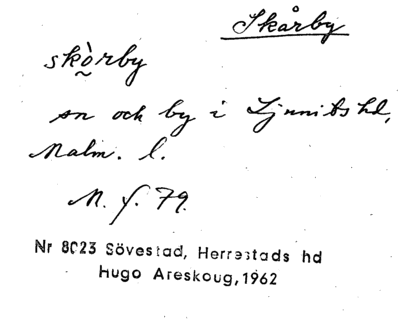 Skårby
skò̰rby
sn och by i Ljunits hd,
Malm. l.
M. f. 79.
Nr 8023 Sövestad, Herrestads hd
Hugo Areskoug, 1962